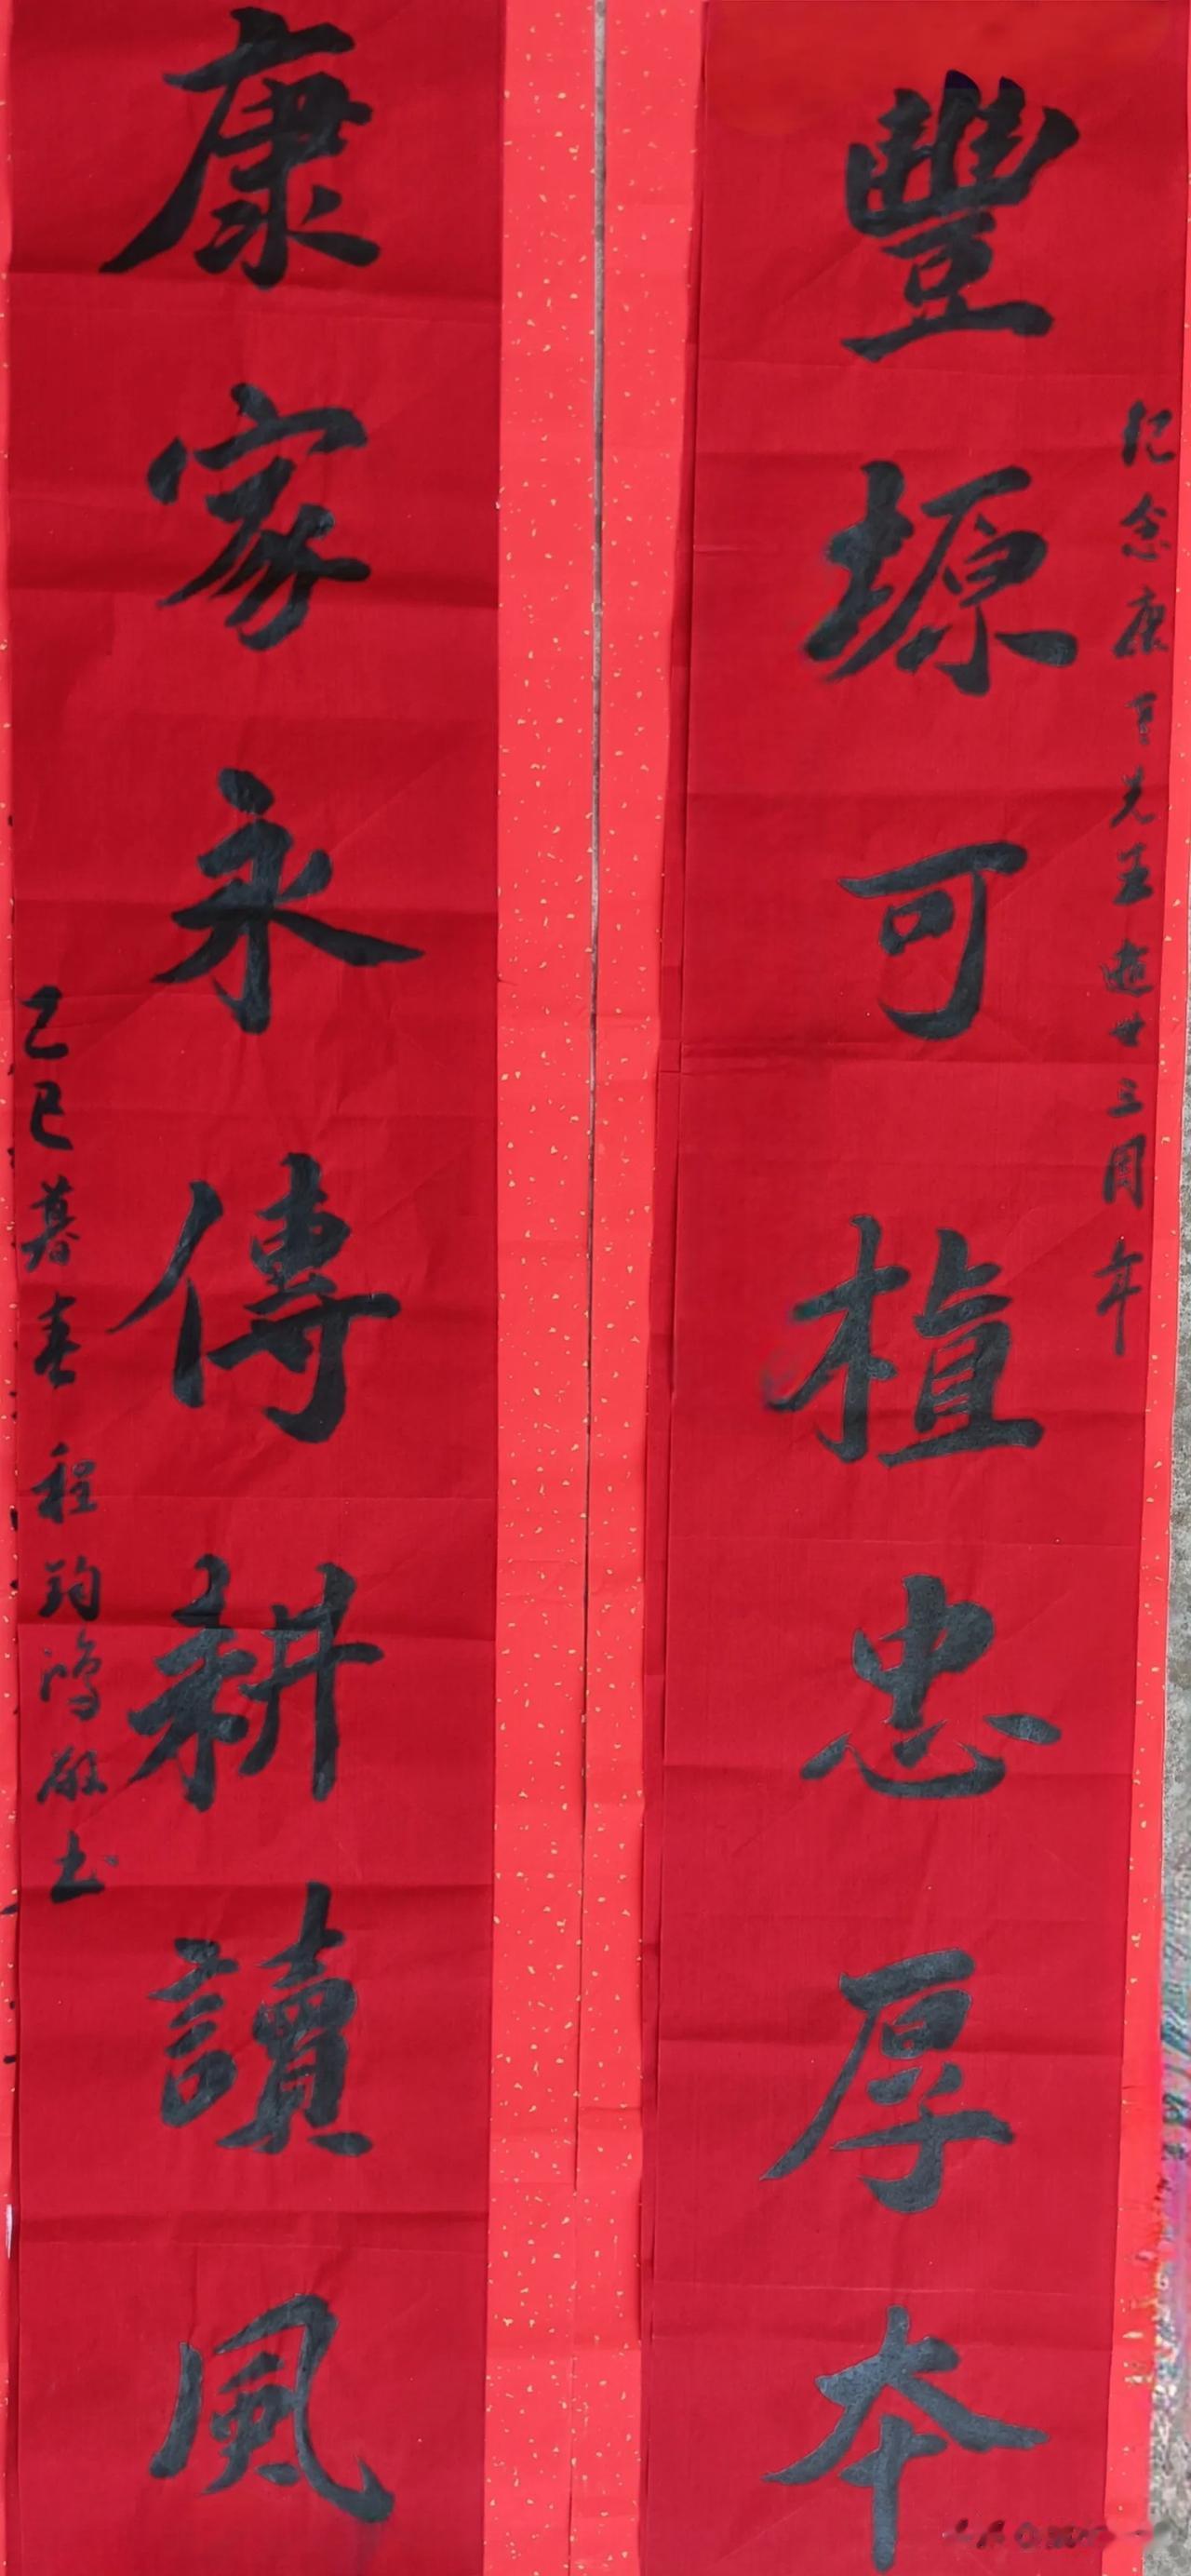 纪念康王先生逝世三周年
豐塬可植忠厚本
康家永傳耕讀風
乙巳暮春 程鈞鴻敬书